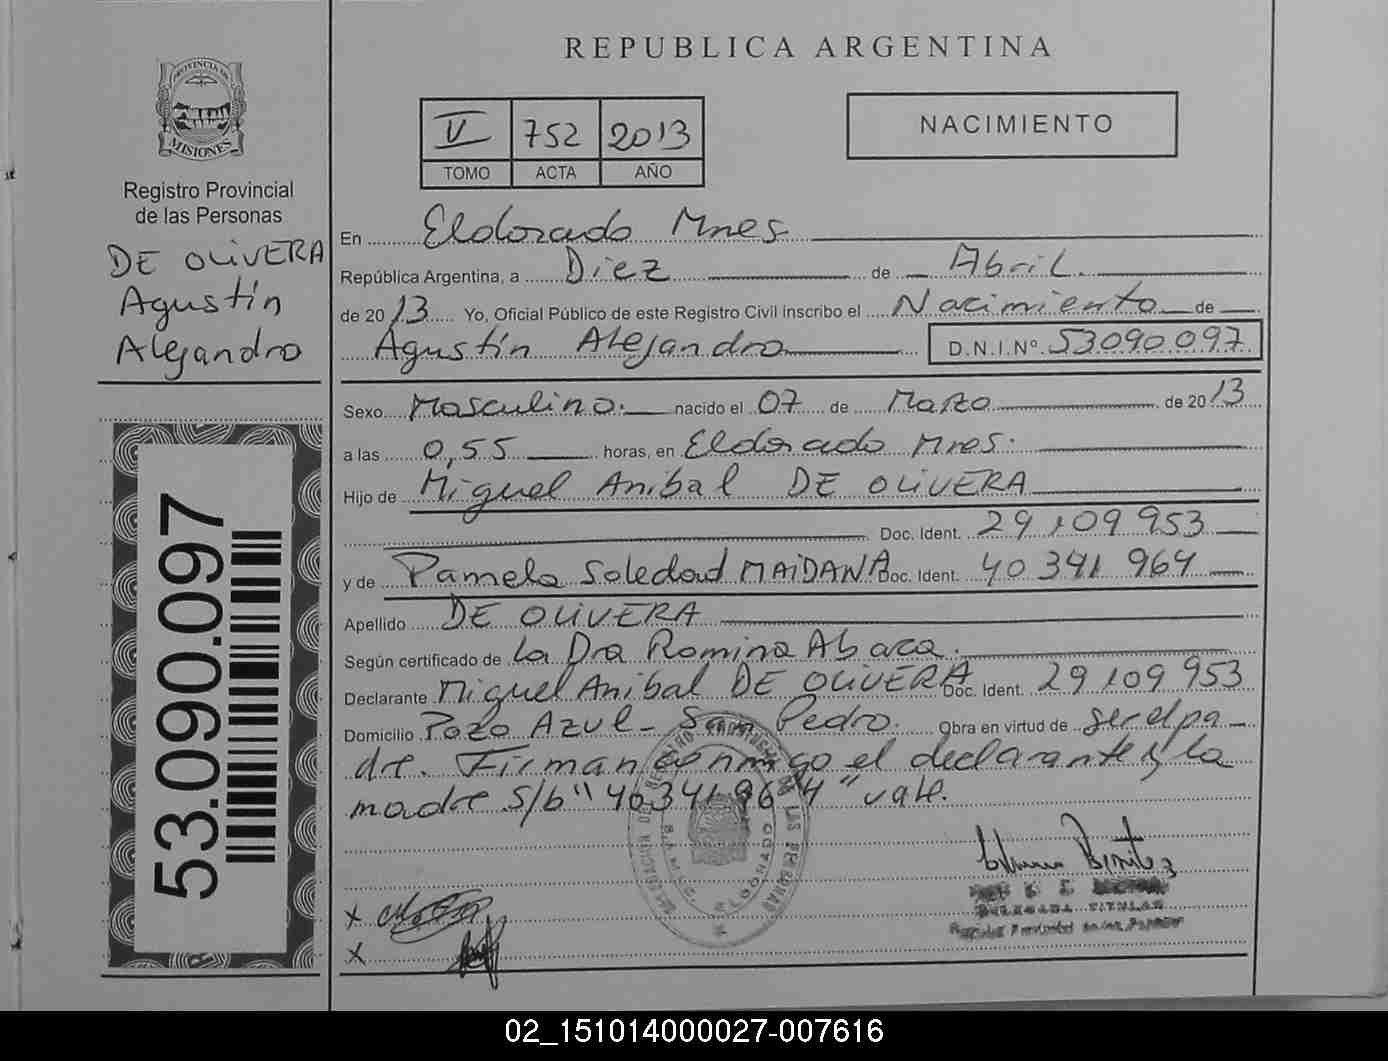 REPUBLICA ARGENTINA
PROVINCIA DE
MISIONES
Registro Provincial
de las Personas
DE OLIVERA
Agustín
Alejandro
53.090.097
V 752 2013
TOMO ACTA AÑO
NACIMIENTO
En Eldorado Mnes
República Argentina, a Diez de Abril
de 2013 Yo, Oficial Público de este Registro Civil inscribo el Nacimiento de
Agustín Alejandro D.N.I.Nº. 53090097
Sexo Masculino. nacido el 07 de Marzo de 2013
a las 0,55 horas, en Eldorado Mnes.
Hijo de Miguel Anibal DE OLIVERA
Doc. Ident. 29109953
y de Pamela Soledad MAIDANA Doc. Ident. 40341964
Apellido DE OLIVERA
Según certificado de la Dra Romina Abaca.
Declarante Miguel Anibal DE OLIVERA Doc. Ident. 29109953
Domicilio Pozo Azul - San Pedro. Obra en virtud de ser el pa
dre. Firman conmigo el declarante y la
madre S/b "40341964" vale.
x
x
DELEGADA TITULAR
Registro Provincial de las Personas
02_151014000027-007616